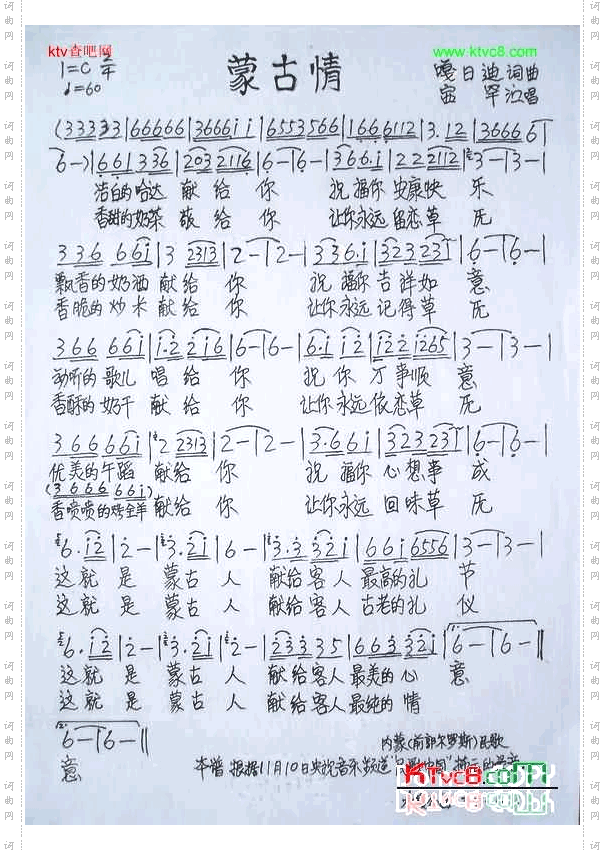 ktv查吧网
www.ktvc8.com
蒙古情
1=C 2/4
♩=60
嘎日迪 词曲
宙 罕 演唱
(33333|66666|3666ii|6553566|1666112|3.12|36666i
6-)|661336|2032116|6-|6-|366.i|222112|3-|3-|
洁白的哈达 献给 你 祝福你 安康快 乐
香甜的奶茶 献给 你 让你永远 留恋草 原
336 66i|3 2313|2-|2-|336.i|32323i|6-|6-|
飘香的奶酒 献给 你 祝福你 吉祥如 意
香脆的炒米 献给 你 让你永远 记得草 原
366 66i|i.2 2i6|6-|6-|6.i i2|i22 i265|3-|3-|
动听的歌儿 唱给 你 祝你 万事顺 意
香酥的奶干 献给 你 让你永远 依恋草 原
366 666i|2 2313|2-|2-|3.66i|32323i|6-|6-|
优美的午蹈 献给 你 祝福你 心想事 成
(3666 66i)
香喷喷的烤全羊 献给 你 让你永远 回味草 原
6.i2|2-|3.2i|6-|3.3 32i|66i 6556|3-|3-|
这就 是 蒙古 人 献给客人 最高的礼 节
这就 是 蒙古 人 献给客人 古老的礼 仪
6.i2|2-|3.2i|2-|23335|66332i|6-|6-||
这就 是 蒙古 人 献给客人 最美的心 意
这就 是 蒙古 人 献给客人 最纯的 情
6-|6-||
意
内蒙(前郭尔罗斯)民歌
本谱 根据11月10日央视音乐频道
KTvc8.com
词曲网